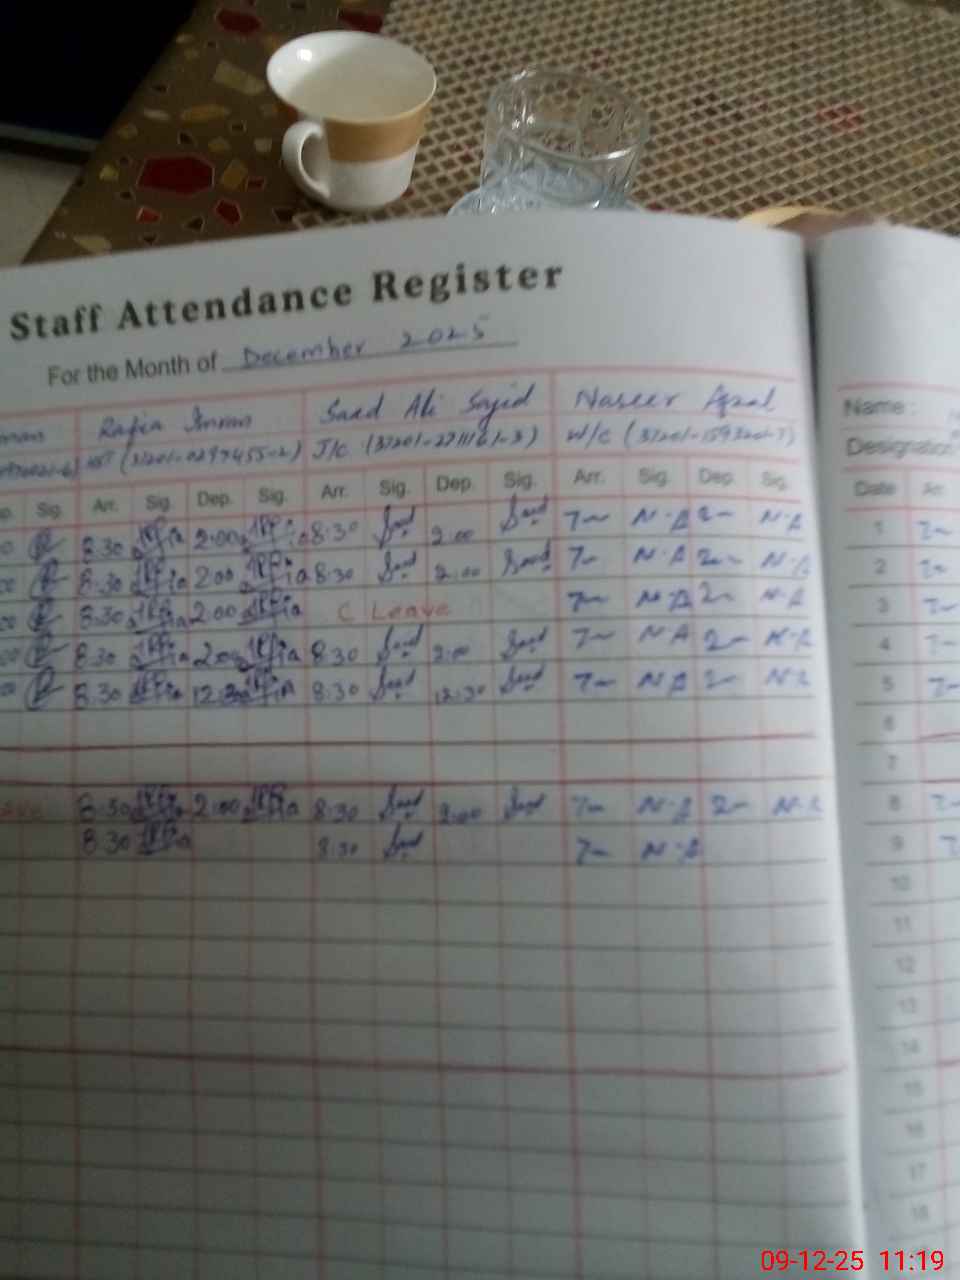 Staff Attendance Register
For the Month of December 2025
Rafia Imran Saad Ali Sajid Naseer Afzal
(31201-0297455-2) J/C (31201-2711161-3) W/C
Sig. Arr. Sig. Dep. Sig. Arr. Sig. Dep. Sig. Arr. Sig. Dep. Sig.
8:30 Rafia 2:00 Rafia 8:30 Saad 2:00 Saad 7— N.A 2— N.A
8:30 Rafia 2:00 Rafia 8:30 Saad 2:00 Saad 7— N.A 2— N.A
8:30 Rafia 2:00 Rafia C Leave 7— N.A 2— N.A
8:30 Rafia 2:00 Rafia 8:30 Saad 2:00 Saad 7— N.A 2— N.A
8:30 Rafia 12:30 Rafia 8:30 Saad 12:30 Saad 7— N.A 2— N.A
8:30 Rafia 2:00 Rafia 8:30 Saad 2:00 Saad 7— N.A 2— N.A
8:30 Rafia 8:30 Saad 7— N.A
Name :
Designation
Date Arr.
1 7—
2 7—
3 7—
4 7—
5 7—
6
7
8 7—
9 7—
10
11
12
13
14
15
16
17
18
09-12-25 11:19